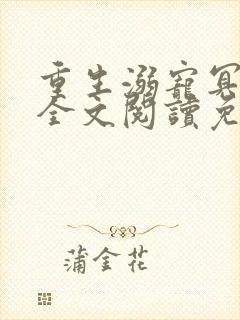 重生溺寵
全文閱讀免
蒲金花